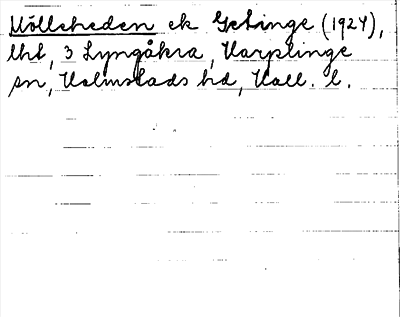 Mölleheden ek Getinge (1924),
lht, 3 Lyngåkra, Harplinge
sn, Halmstads hd, Hall. l.